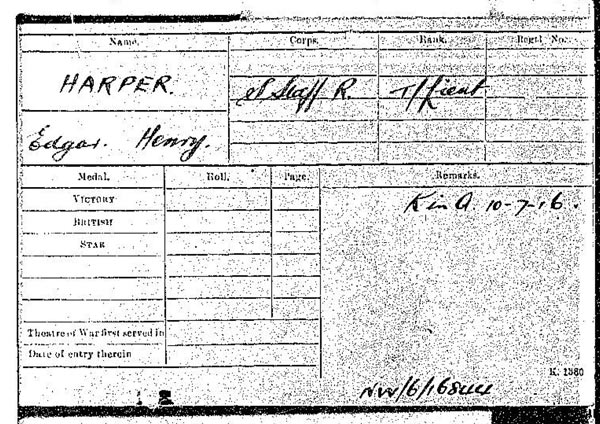 Name. Corps. Rank. Regtl. No.
HARPER. S Staff R. T/Lieut
Edgar. Henry.
Medal. Roll. Page. Remarks.
VICTORY K in A. 10-7-16.
BRITISH
STAR
Theatre of War first served in
Date of entry therein
K. 1380
NW/6/16844